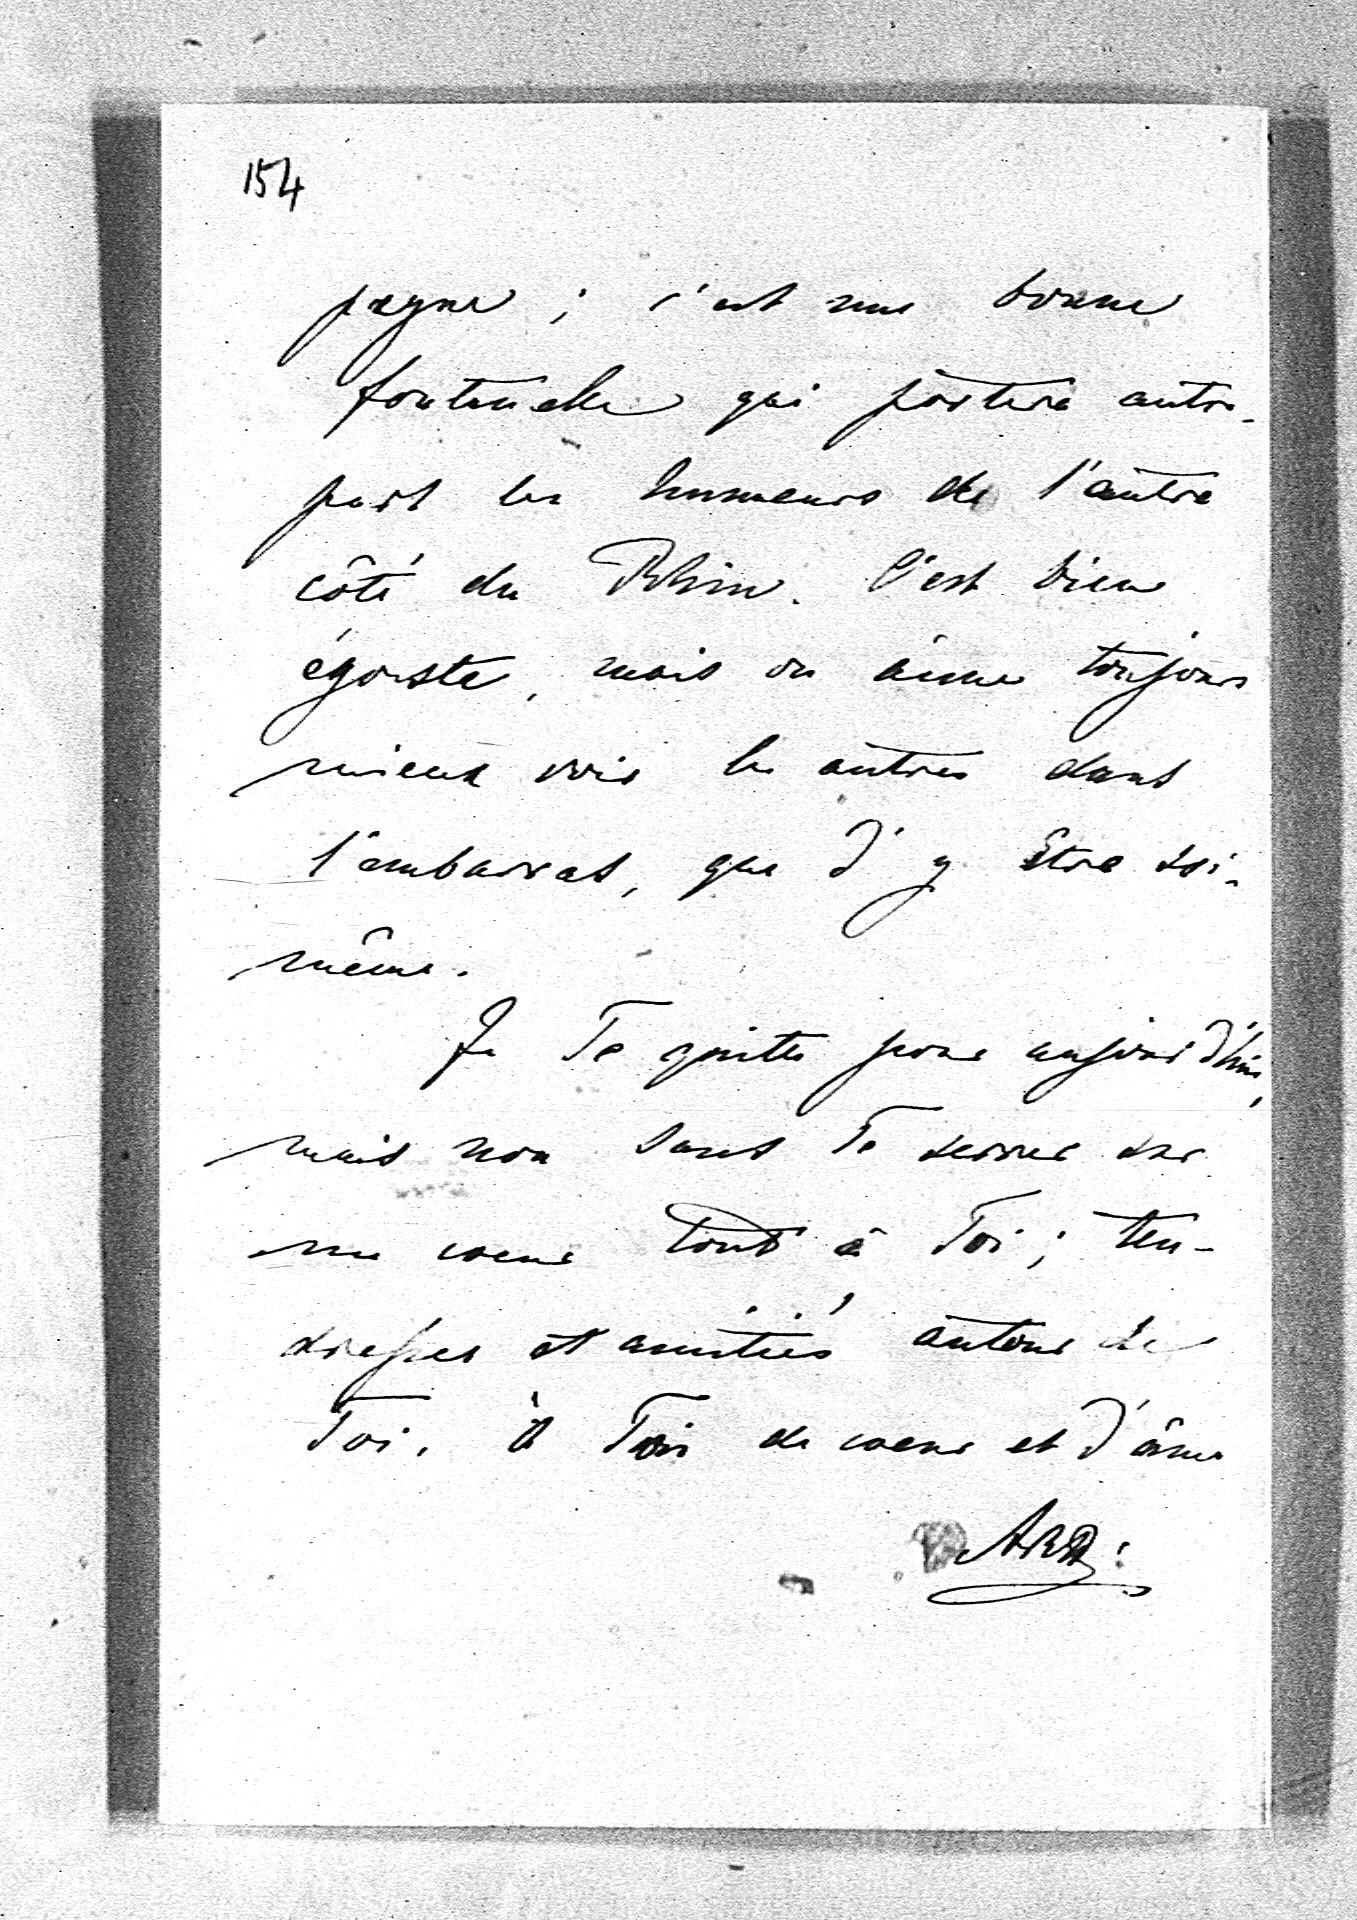 154
pagne ; c'est une bonne
fontanelle qui portera autre-
part les humeurs de l'autre
côté du Rhin. C'est bien
égoiste, mais on aime toujours
mieux voir les autres dans
l'embarras, que d'y être soi-
même.
Je Te quitte pour aujourd'hui,
mais non sans Te serrer sur
un coeur tout à Toi ; ten-
dresses et amitiés autour de
Toi. à Toi de coeur et d'âme